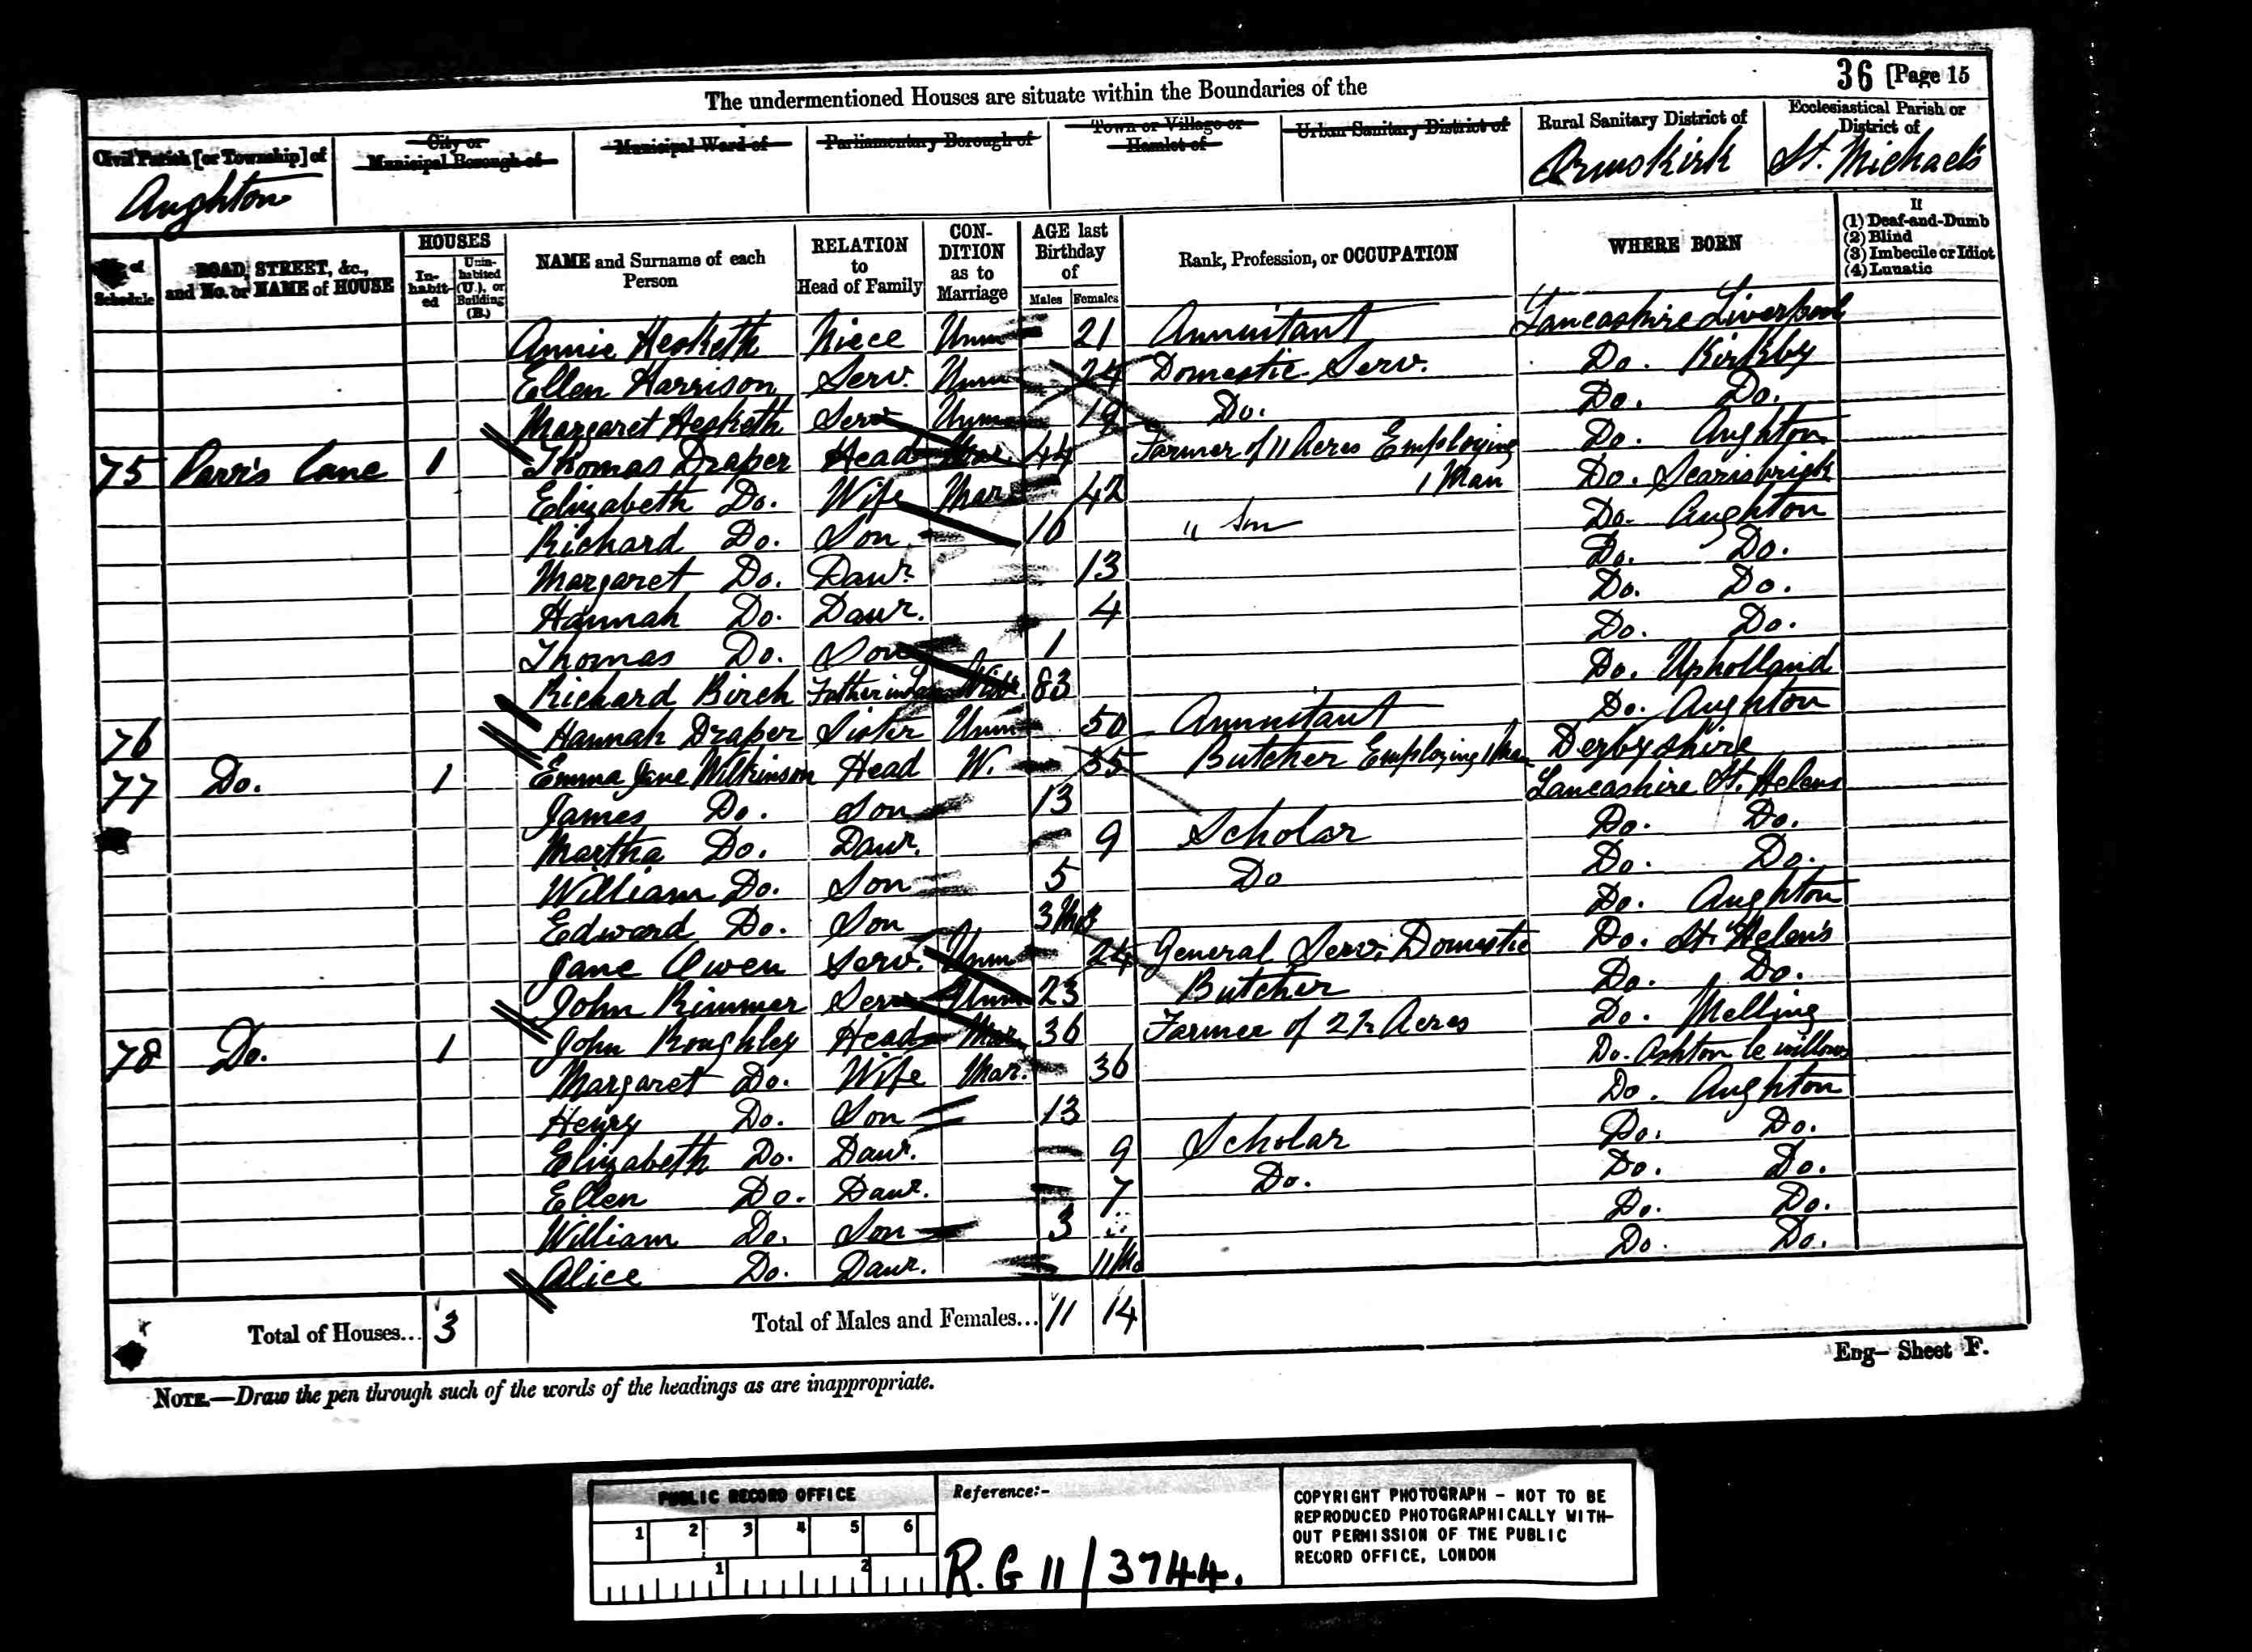 36 [Page 15
The undermentioned Houses are situate within the Boundaries of the
Civil Parish [or Township] of
City or Municipal Borough of
Municipal Ward of
Parliamentary Borough of
Town or Village or Hamlet of
Urban Sanitary District of
Rural Sanitary District of
Ecclesiastical Parish or District of
Aughton Ormskirk St. Michaels
No. of Schedule
ROAD, STREET, &c., and No. or NAME of HOUSE
HOUSES
In-habit-ed
Unin-habited (U.), or Building (B.)
NAME and Surname of each Person
RELATION to Head of Family
CON-DITION as to Marriage
AGE last Birthday of
Males Females
Rank, Profession, or OCCUPATION
WHERE BORN
If
(1) Deaf-and-Dumb
(2) Blind
(3) Imbecile or Idiot
(4) Lunatic
Annie Hesketh Niece Unm 21 Annuitant Lancashire Liverpool
Ellen Harrison Serv. Unm 24 Domestic Serv. Do. Kirkby
Margaret Hesketh Serv Unm 19 Do. Do. Do.
75 Parr's Lane 1 Thomas Draper Head Mar. 44 Farmer of 11 Acres Employing 1 Man Do. Aughton
Elizabeth Do. Wife Mar. 42 Do. Scarisbrick
Richard Do. Son 10 " Son Do. Aughton
Margaret Do. Daur. 13 Do. Do.
Hannah Do. Daur. 4 Do. Do.
Thomas Do. Son 1 Do. Do.
Richard Birch Father in law Widr. 83 Do. Upholland
76 Hannah Draper Sister Unm 50 Annuitant Do. Aughton
77 Do. 1 Emma Jane Wilkinson Head W. 35 Butcher Employing 1 Man Derbyshire
James Do. Son 13 Lancashire St. Helens
Martha Do. Daur. 9 Scholar Do. Do.
William Do. Son 5 Do Do. Do.
Edward Do. Son 3 Mos Do. Aughton
Jane Owen Serv. Unm 24 General Serv. Domestic Do. St. Helens
John Rimmer Serv Unm 23 Butcher Do. Do.
78 Do. 1 John Roughley Head Mar 36 Farmer of 2½ Acres Do. Melling
Margaret Do. Wife Mar. 36 Do. Ashton le willows
Henry Do. Son 13 Do. Aughton
Elizabeth Do. Daur. 9 Scholar Do. Do.
Ellen Do. Daur. 7 Do. Do. Do.
William Do. Son 3 Do. Do.
Alice Do. Daur. 11 Mo Do. Do.
Total of Houses... 3 Total of Males and Females... 11 14
Eng— Sheet F.
NOTE.—Draw the pen through such of the words of the headings as are inappropriate.
PUBLIC RECORD OFFICE
1 2 3 4 5 6
1 2
Reference:-
R.G 11/3744.
COPYRIGHT PHOTOGRAPH - NOT TO BE
REPRODUCED PHOTOGRAPHICALLY WITH-
OUT PERMISSION OF THE PUBLIC
RECORD OFFICE, LONDON